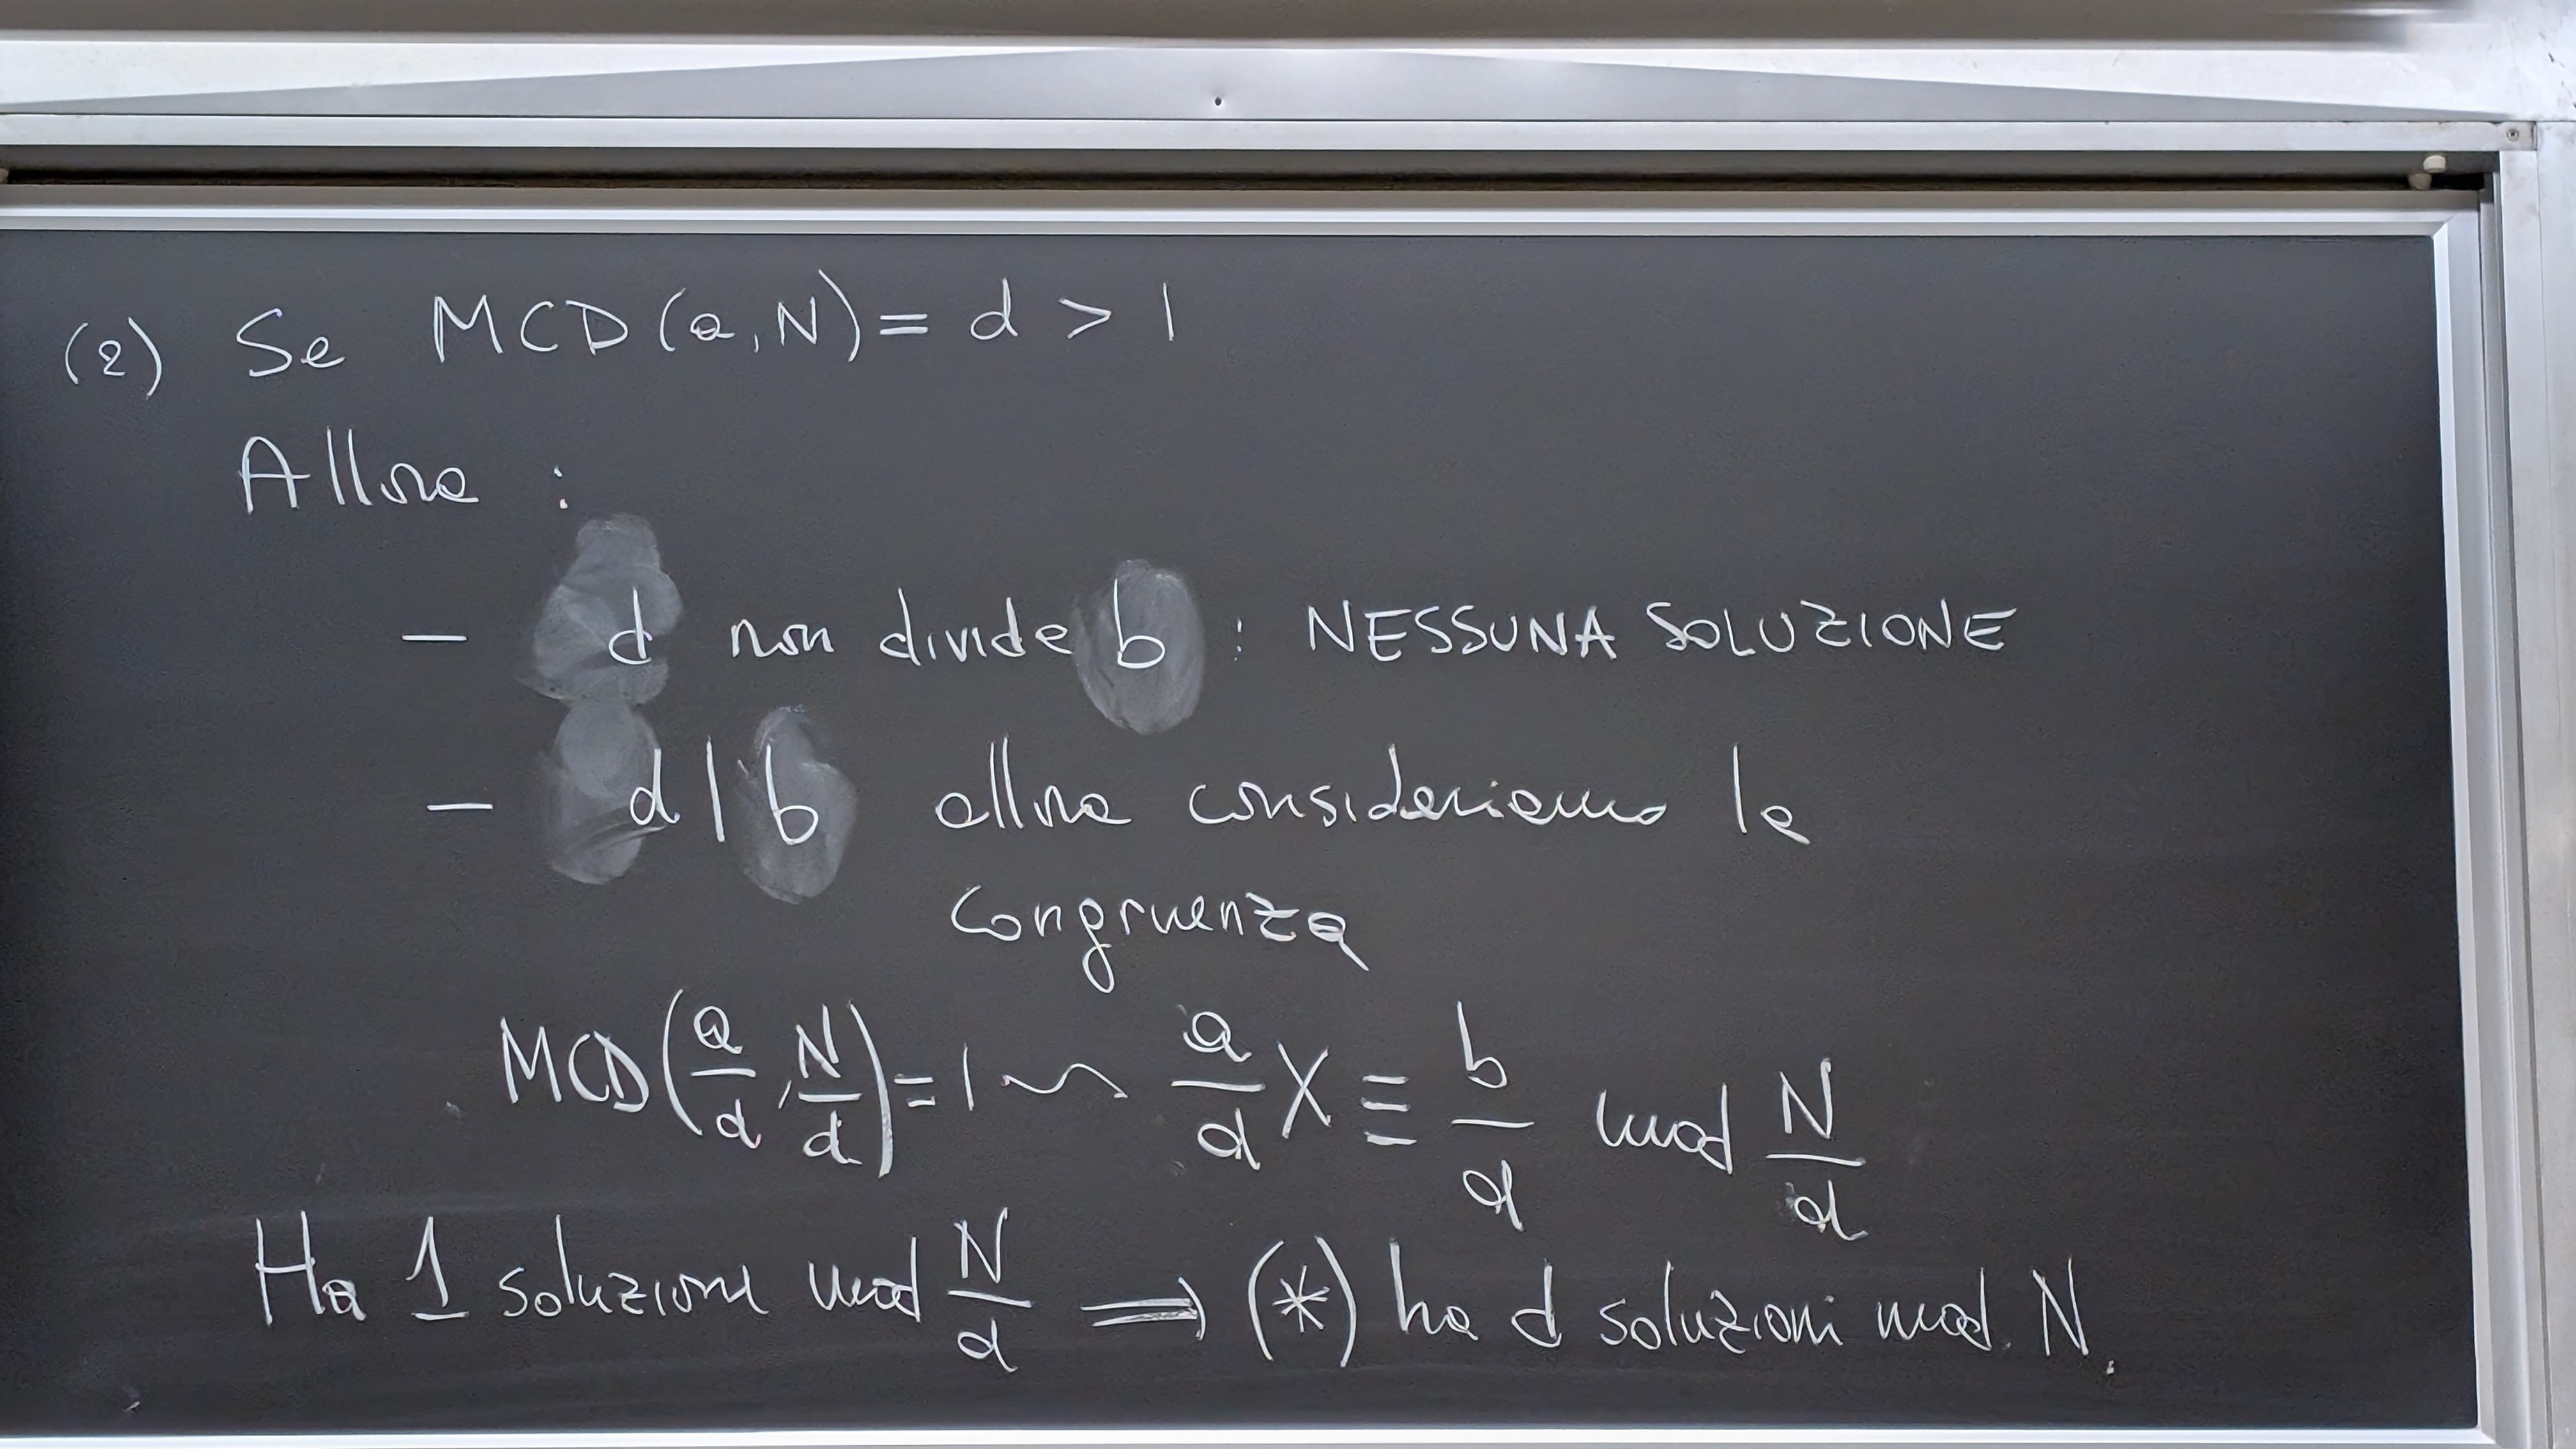 (2) Se MCD(a,N) = d > 1
Allora :
— d non divide b : NESSUNA SOLUZIONE
— d | b allora consideriamo la
congruenza
MCD(a/d, N/d) = 1 ⁓ a/d X ≡ b/d mod N/d
Ha 1 soluzione mod N/d ⟹ (*) ha d soluzioni mod. N.